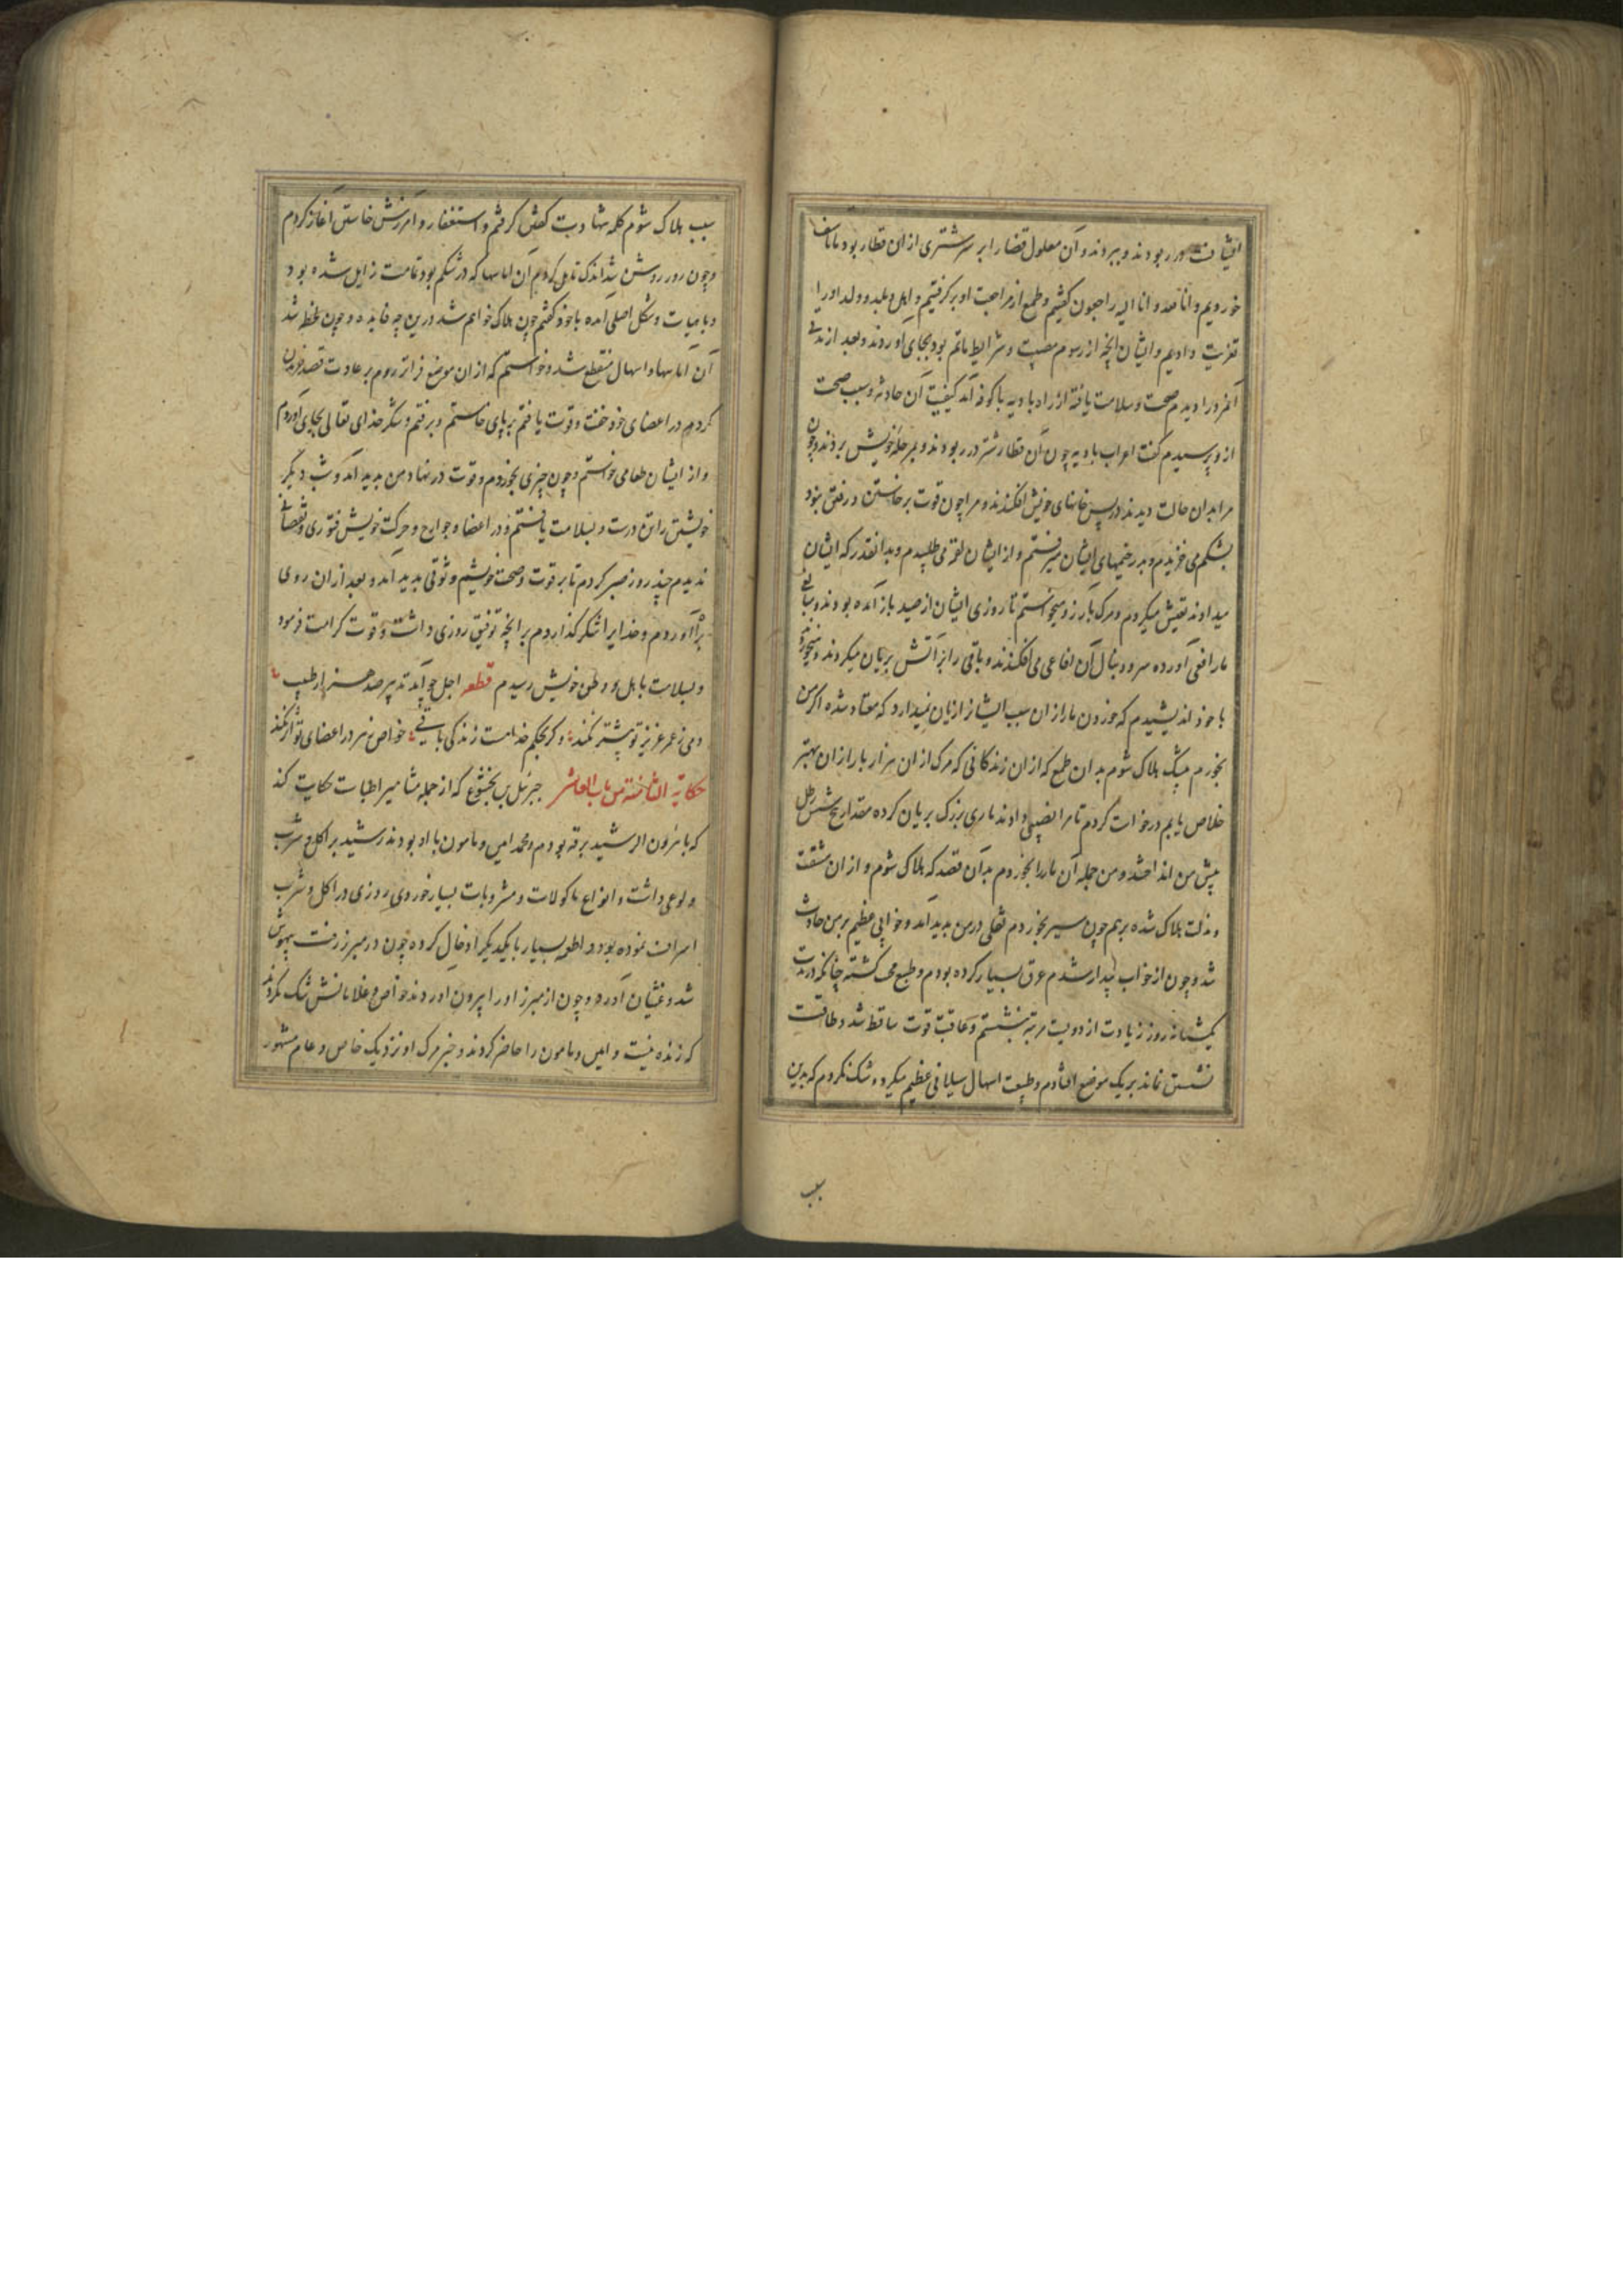 در ربودند و ببردند و آن معلول قضا را بر سر شتری از ان قطار بود ما تاسف
خوردیم و انا لله و انا الیه راجعون گفتیم و طمع از مراجعت او برگرفتیم و اهل و بلد و ولد او را
تعزیت دادیم و ایشان آنچه از رسوم مصیبت و شرایط ماتم بود بجای آوردند و بعد از مدتی
آنمرد را دیدم صحت و سلامت یافته از راه بادیه باکوفه آمد کیفیت آن حادثه و سبب صحت
ازو پرسیدم گفت اعراب بادیه چون آن قطار شتر در ربودند و بر حله خویش بردند و چون
مرا بدان حالت دیدند در پس خانهای خویش افکندند و مرا چون قوت برخاستن و رفتن نبود
بشکم می خزیدم و بدر خیمهای ایشان میرفتم و از ایشان لقمه می طلبیدم و بدانقدر که ایشان
میدادند تعیش میکردم و مرگ بآرزو میخواستم تا روزی ایشان از صید باز آمده بودند و
مار افعی آورده سر و دنبال آن افاعی می افکندند و باقی را بر آتش بریان میکردند و میخوردند
با خود اندیشیدم که خوردن مار از ان سبب ایشان را زیان نمیدارد که معتاد شده اگر من
بخورم بیشک هلاک شوم بدان طمع که ازان زندگانی که مرگ ازان هزار بار ازان بهتر
خلاص یابم درخواست کردم تا مرا نصیبی دادند ماری بزرگ بریان کرده مقدار پنج شش رطل
پیش من انداختند و من جمله آن مار را بخوردم بدان قصد که هلاک شوم و از ان مشقت
و مذلت هلاک شده برهم چون سیر بخوردم ثقلی در من بدید آمد و خوابی عظیم بر من حادث
شد و چون از خواب بیدار شدم عرق بسیار کرده بودم و طبع گشته چنانکه در مدت
یکشبانه روز زیادت از دویست مرتبه بنشستم و عاقبت قوت ساقط شد و طاقت
نشستن نماند بر یک موضع افتادم و طبیعت اسهال سیلانی عظیم میکرد و شک نکردم که بدین
سبب
سبب هلاک شوم کلمه شهادت گفتن گرفتم و استغفار و آمرزش خواستن آغاز کردم
و چون روز روشن شد اندک تامل کردم آن اماسها که در شکم بود تمامت زایل شده بود
و با هیات و شکل اصلی آمده با خود گفتم چون هلاک خواهم شد درین چه فایده و چون لحظه شد
آن اماسها و اسهال منقطع شد و خواستم که از ان موضع فراتر روم بر عادت قصد خزیدن
کردم در اعضای خود خفت و قوت یافتم بر پای خاستم و برفتم و شکر خدای تعالی بجای آوردم
و از ایشان طعامی خواستم و چون چیزی بخوردم و قوت در نهاد من بدید آمد و شب دیگر
خویشتن را تن درست و بسلامت یافتم و در اعضا و جوارح و حرکت خویش فتوری و نقصانی
ندیدم چند روز صبر کردم تا بر قوت و صحت خویشم وثوقی بدید آمد و بعد از ان روی
براه آوردم و خدایرا شکر گذاردم بر آنچه توفیق روزی داشت و قوت کرامت فرمود
و بسلامت با اهل و وطن خویش رسیدم قطعه اجل چو آمد تدبیر صد هزار طبیب
دمی ز عمر عزیز تو بیشتر نکند و گر بحکم خدا هست زندگی باقی خواص زهر در اعضای تو اثر نکند
حکایة الثامنة من باب العاشر جبرئیل بن بختشوع که از جمله مشاهیر اطبا ست حکایت کند
که با هرون الرشید برقه بودم و محمد امین و مامون با او بودند رشید بر اکل و شرب
ولوعی داشت و انواع ماکولات و مشروبات بسیار خوردی روزی در اکل و شرب
اسراف نموده بود و اطعمه بسیار با یکدیگر ادخال کرده چون در مبرز رفت بیهوش
شد و غشیان آورد و چون از مبرز او را بیرون آوردند خواص و غلامانش شک نکردند
که زنده نیست و امین و مامون را حاضر کردند و خبر مرگ او نزدیک خاص و عام مشهور